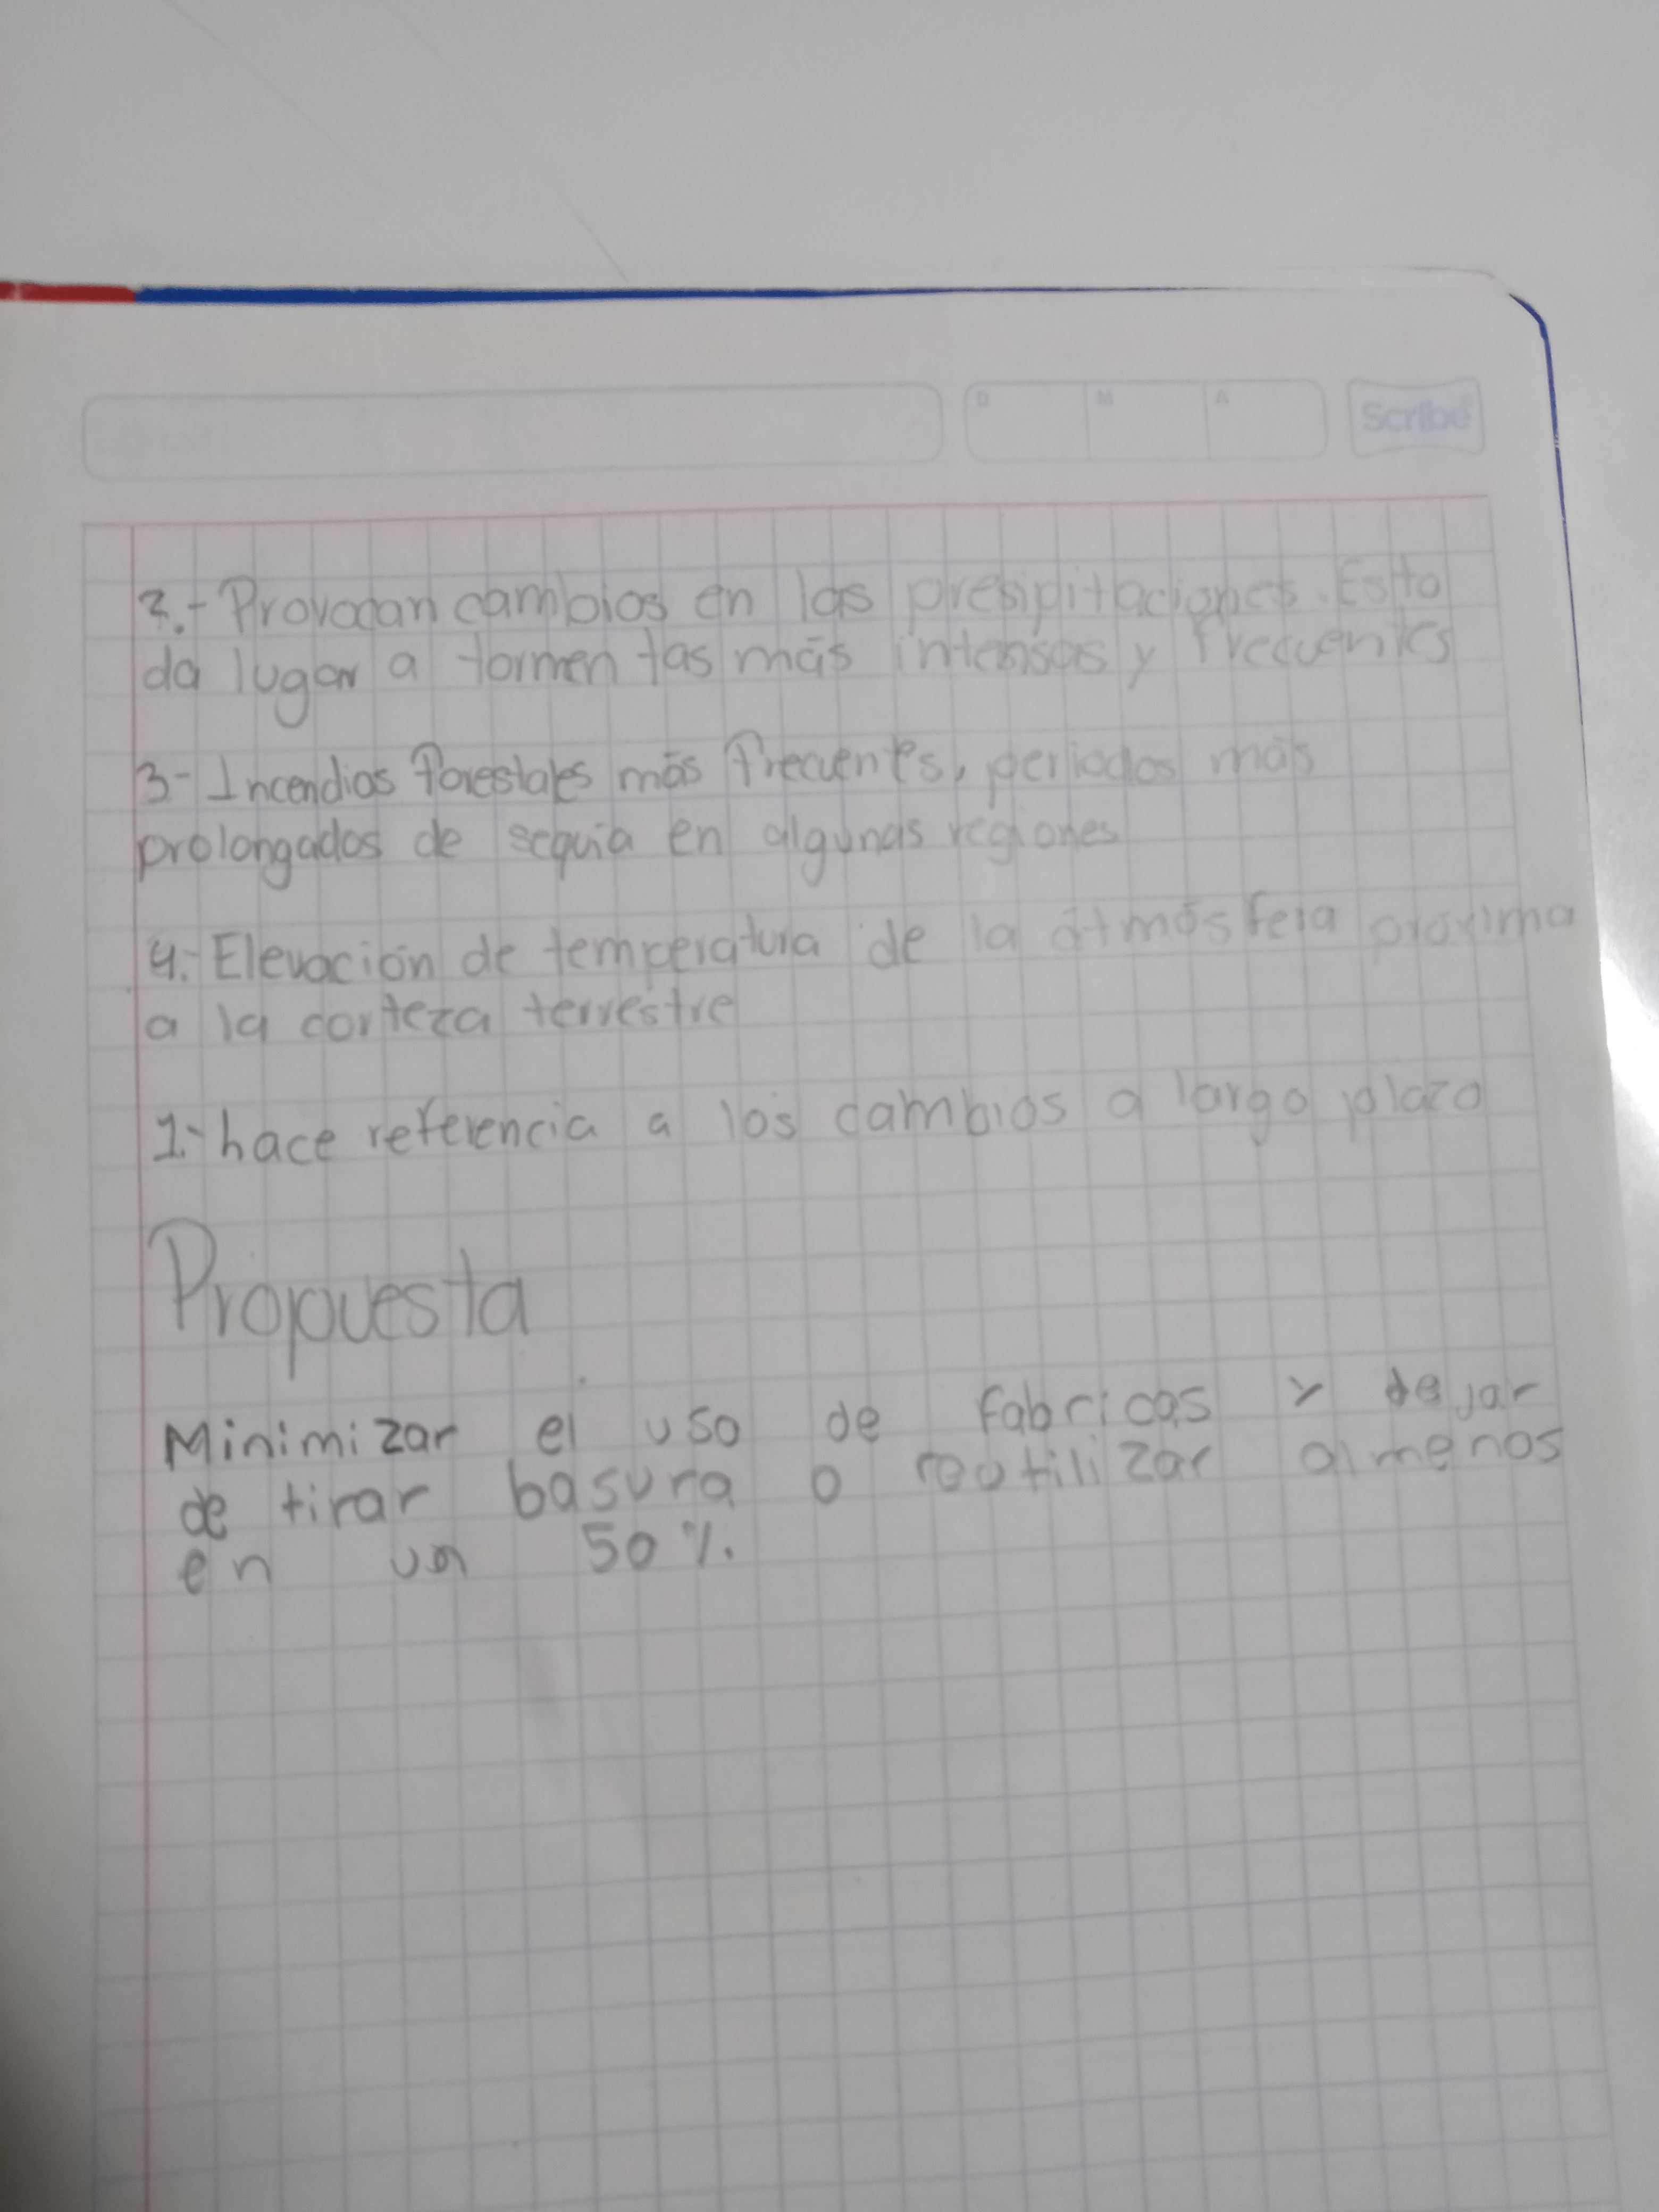 D M A Scribe
2.- Provocan cambios en las presipitaciones. Esto
da lugar a tormentas más intensas y frecuentes
3- Incendios forestales más frecuentes, periodos más
prolongados de sequia en algunas regiones
4.- Elevación de temperatura de la átmosfera próxima
a la corteza terrestre
1.- hace referencia a los cambios a largo plazo
Propuesta
Minimizar el uso de fabricas y dejar
de tirar basura o reutilizar almenos
en un 50%.